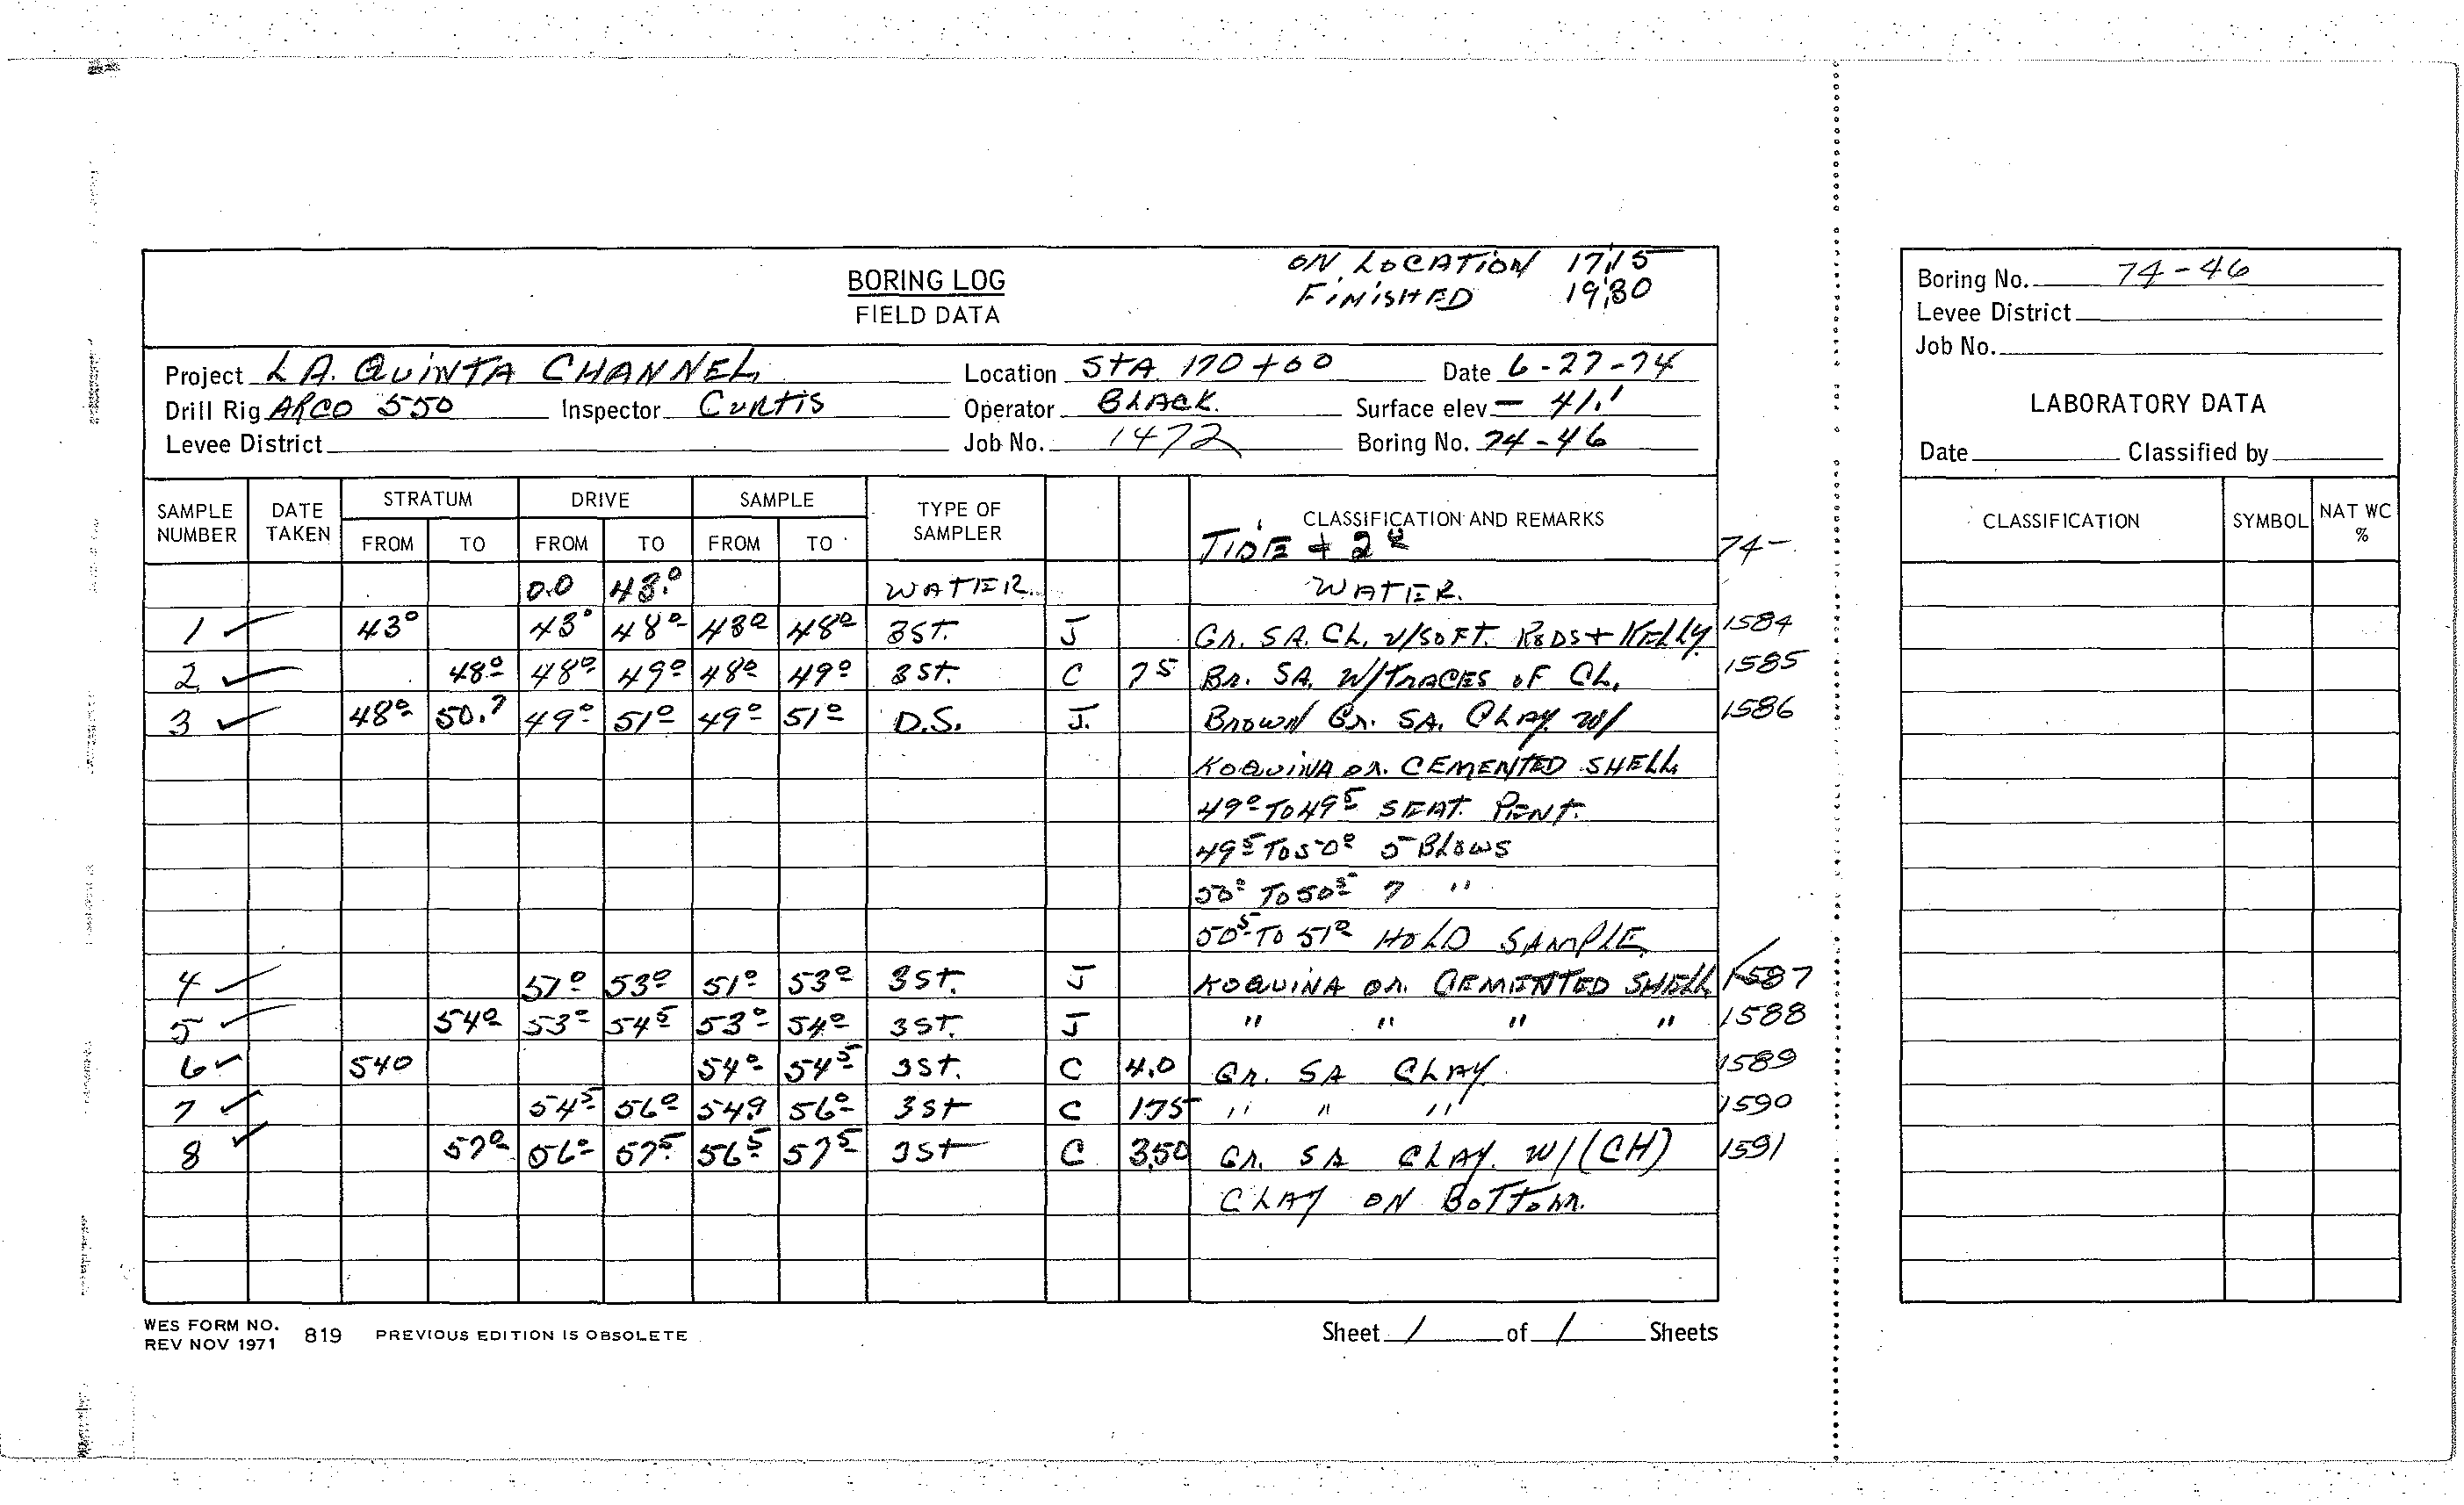 ON LOCATION 17:15
BORING LOG
FINISHED 19:30
FIELD DATA
Project LA. QUINTA CHANNEL Location STA 170+00 Date 6-27-74
Drill Rig ARCO 550 Inspector CURTIS Operator BLACK. Surface elev. - 41.1
Levee District Job No. 1472 Boring No. 74-46
SAMPLE NUMBER DATE TAKEN STRATUM FROM TO DRIVE FROM TO SAMPLE FROM TO TYPE OF SAMPLER CLASSIFICATION AND REMARKS
TIDE + 2 74-
0.0 43.0 WATER. WATER.
1 43.0 43.0 48.0 43.0 48.0 3ST. J GR. SA. CL. W/SOFT. RODS + KELLY 1584
2 48.0 48.0 49.0 48.0 49.0 3ST. C 75 BR. SA. W/TRACES OF CL. 1585
3 48.0 50.7 49.0 51.0 49.0 51.0 D.S. J. BROWN GR. SA. CLAY W/ 1586
KOQUINA OR. CEMENTED SHELL
49.0 TO 49.5 SEAT. PENT.
49.5 TO 50.0 5 BLOWS
50.0 TO 50.5 7 "
50.5 TO 51.0 HOLD SAMPLE
4 51.0 53.0 51.0 53.0 3ST. J KOQUINA OR. CEMENTED SHELL 1587
5 54.0 53.0 54.5 53.0 54.0 3ST. J " " " " 1588
6 54.0 54.0 54.5 3ST. C 4.0 GR. SA CLAY. 1589
7 54.5 56.0 54.9 56.0 3ST C 1.75 " " " 1590
8 57.0 56.0 57.5 56.5 57.5 3ST C 3.50 GR. SA CLAY. W/(CH) 1591
CLAY ON BOTTOM.
WES FORM NO. 819 PREVIOUS EDITION IS OBSOLETE
REV NOV 1971
Sheet 1 of 1 Sheets
Boring No. 74-46
Levee District
Job No.
LABORATORY DATA
Date Classified by
CLASSIFICATION SYMBOL NAT WC %